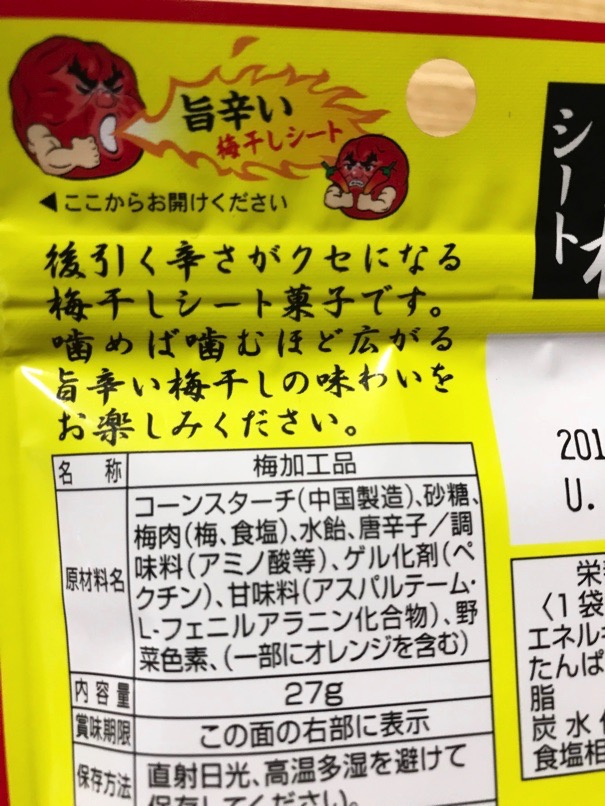 旨辛い
梅干しシート
◀ここからお開けください
シート
後引く辛さがクセになる
梅干しシート菓子です。
噛めば噛むほど広がる
旨辛い梅干しの味わいを
お楽しみください。
名 称 梅加工品
原材料名
コーンスターチ(中国製造)、砂糖、
梅肉(梅、食塩)、水飴、唐辛子/調
味料(アミノ酸等)、ゲル化剤(ペ
クチン)、甘味料(アスパルテーム・
L-フェニルアラニン化合物)、野
菜色素、(一部にオレンジを含む)
内容量 27g
賞味期限 この面の右部に表示
保存方法 直射日光、高温多湿を避けて
保存してください。
201
U.
栄
〈1袋
エネル
たんぱ
脂
炭水
食塩相